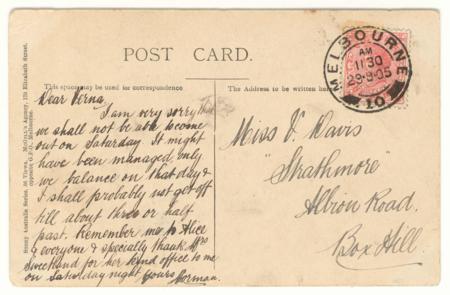 POST CARD.
This space may be used for correspondence
The Address to be written here
MELBOURNE
AM
11 30
29·9·05
10
Dear Verna,
I am very sorry that
we shall not be able to come
out on Saturday. It might
have been managed, only
we balance on that day &
I shall probably not get off
till about three or half
past. Remember me to Alice
& everyone & specially thank Mrs
Sweetland for her kind office to me
on Saturday night Yours Norman.
Miss V Davis
"Strathmore"
Albion Road.
Box Hill.
Sunny Australia Series. 86 Views.
opposite G.P.O., Melbourne.